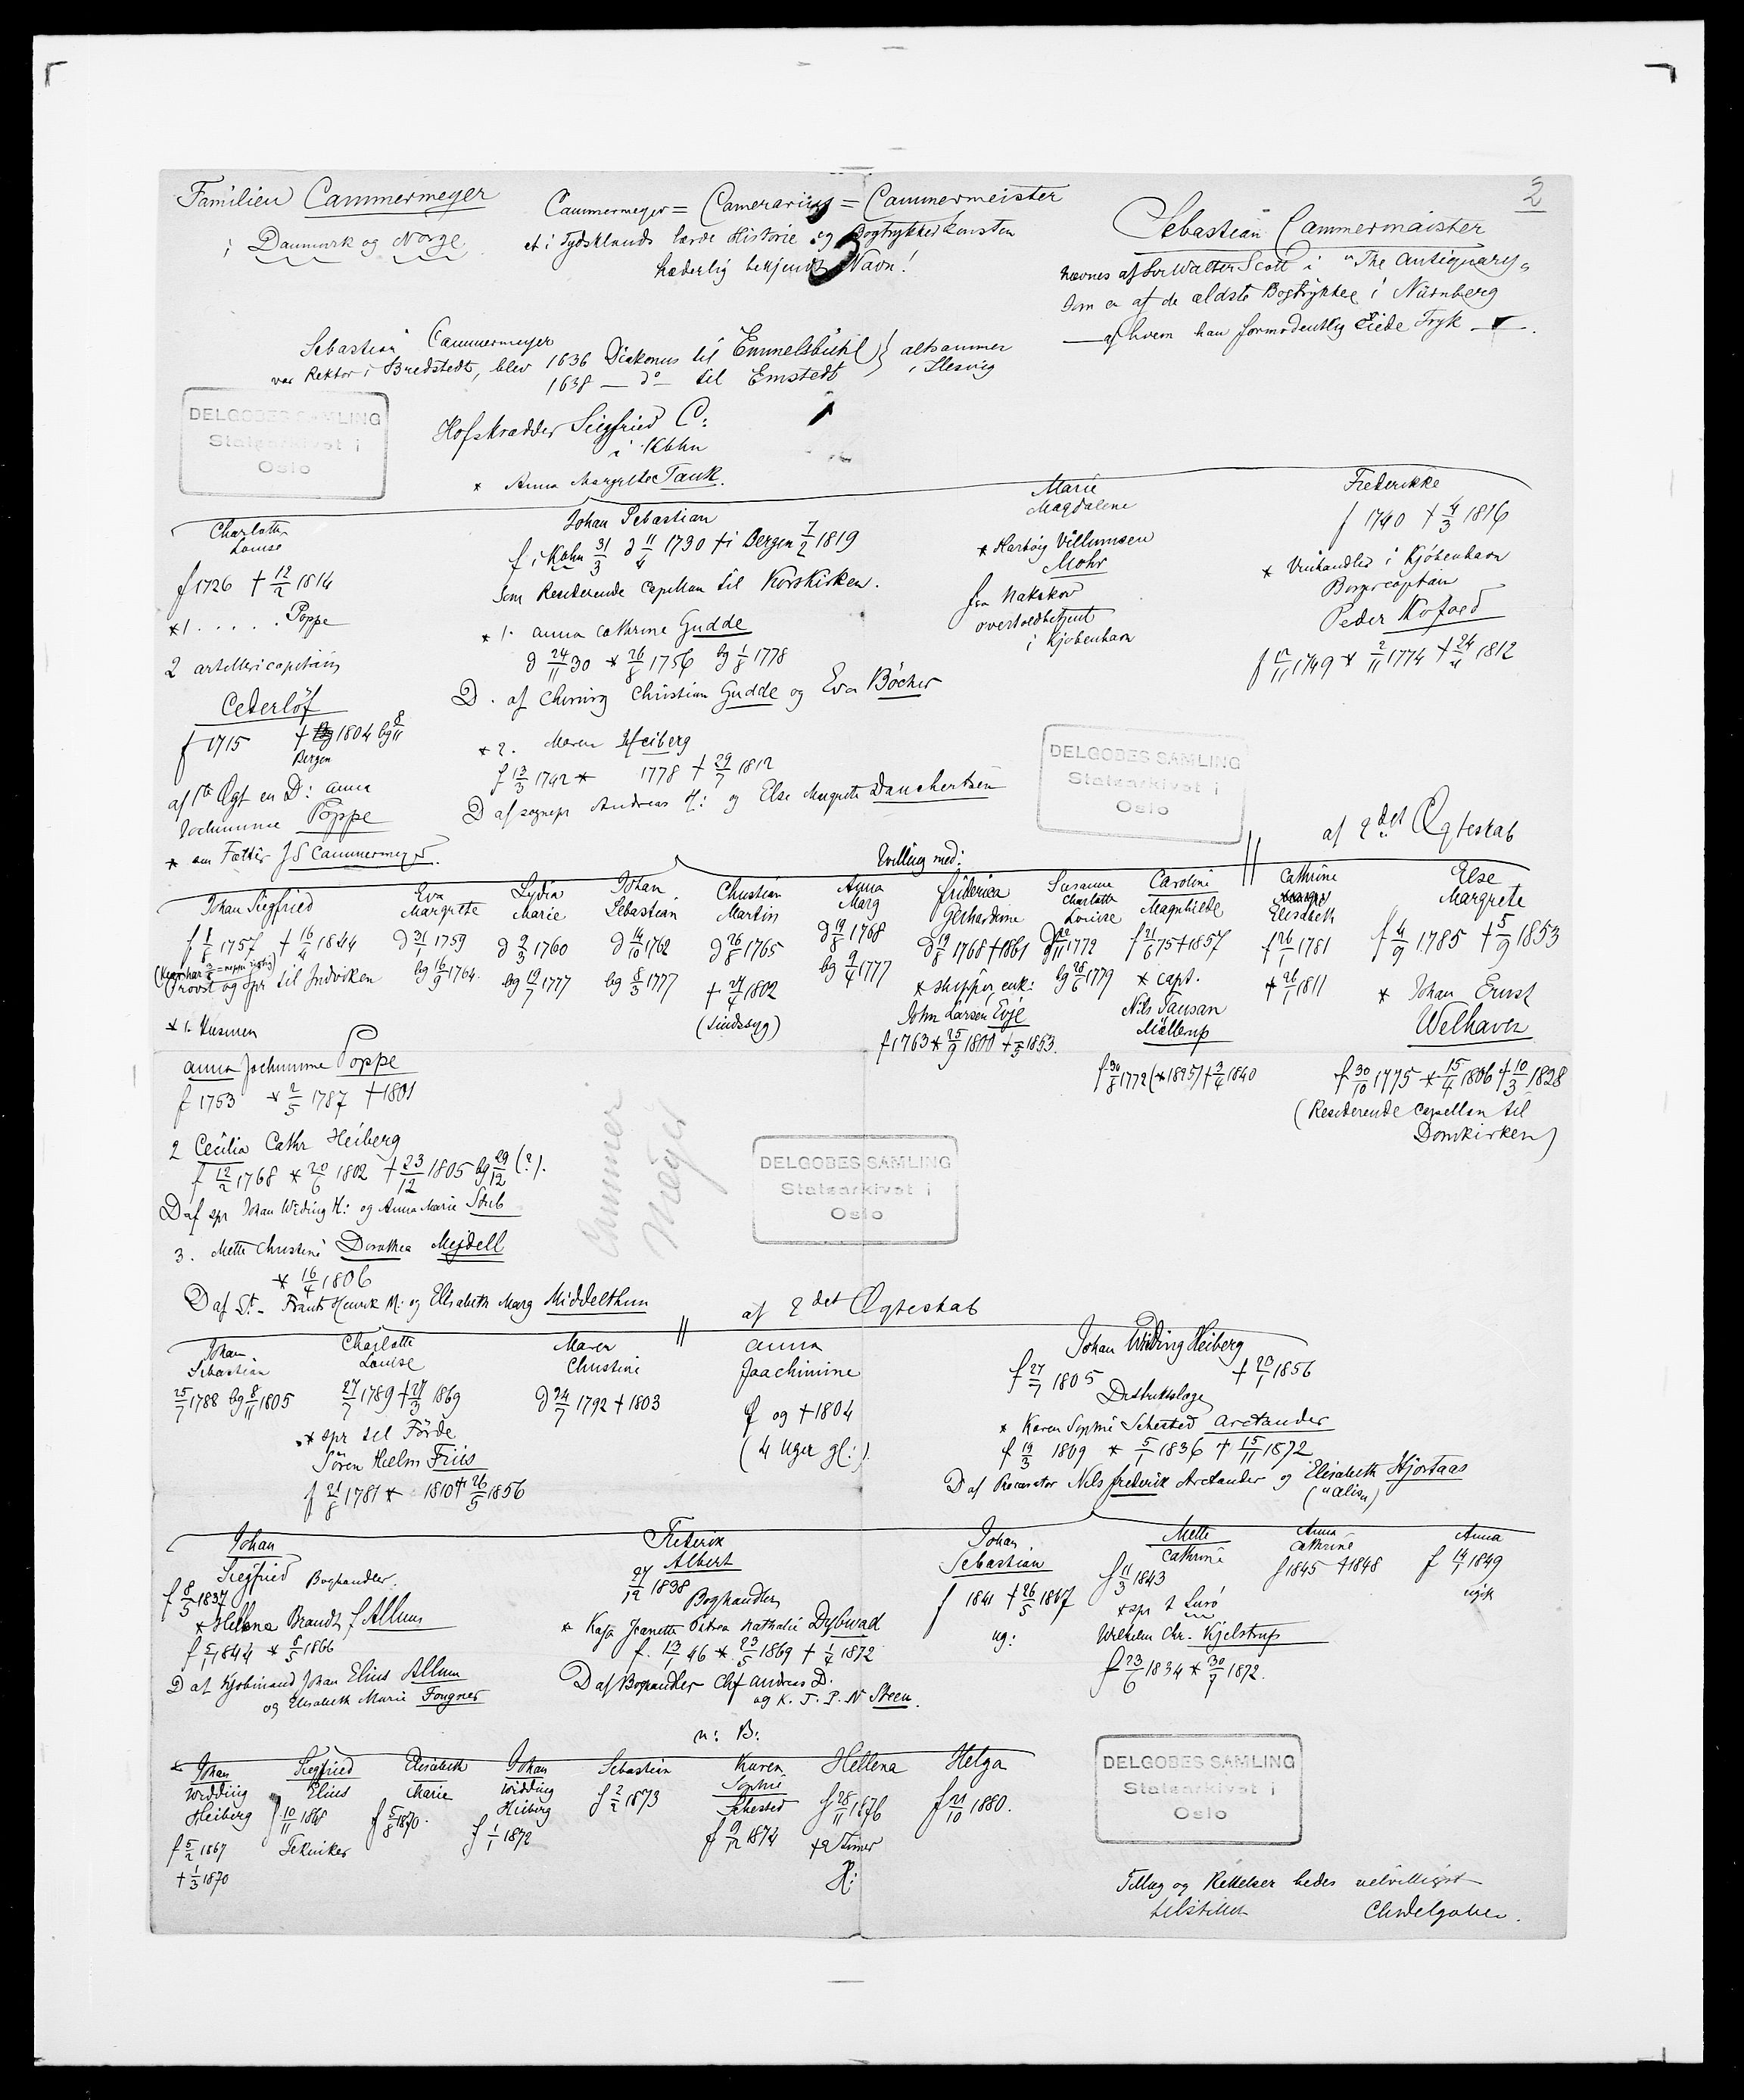 2
Familien Cammermeyer
i Danmark og Norge
Cammermeyer = Camerarius = Cammermeister
et i Tydsklands lærde Historie og Bogtrykkerkunsten
hæderlig bekjendt Navn!
Sebastian Cammermaister
nævnes af Sir Walter Scott i "The Antiquary"
som en af de ældste Bogtrykkere i Nürnberg
af hvem han formodentlig Eiede Tryk
Sebastian Cammermeyer
var Rektor i Bredstedt, blev 1636 Diakonus til Emmelsbühl } altsammen
1638 — do — til Emstedt } i Slesvig
DELGOBES SAMLING
Statsarkivet i
Oslo
Hofskrædder Siegfried C:
i Kbhn
* Anna Margrethe Tank.
Charlotte
Louise
f 1726 † 12/2 1814
*1. . . . . Poppe
2 artillericaptain
Cederlöf
f 1715 † 1804 bg 8/11
Bergen
af 1te Ægt en D: Anna
Jochumine Poppe
* sin Fætter J S Cammermeyer.
Johan Sebastian
f i Kbhn 31/3 d 11/4 1730 † i Bergen 7/2 1819
som Residerende Capellan til Korskirken.
* 1. Anna Cathrine Gudde
d 24/11 30 * 26/8 1756 bg 1/8 1778
D. af Chirurg Christian Gudde og Eva Böcher
* 2. Maren Heiberg
f 13/3 1742 * 1778 † 29/7 1812
D af sognepr Andreas H: og Else Margrete Danchertsen
Marie
Magdalene
* Hartvig Villumsen
Mohr
fra Nakskov
overtoldbetjent
i Kjøbenhavn
Frederikke
f 1740 † 4/3 1816
* Viinhandler i Kjöbenhavn
Borgercaptain
Peder Kofoed
f 12/11 1749 * 2/11 1774 † 24/4 1812
DELGOBES SAMLING
Statsarkivet i
Oslo
af 2det Ægteskab
Tvilling med:
Johan Siegfried
f 1/6 1757 † 16/4 1844
Provst og Spr til Indviken
* 1. Kusinen
Anna Jochumine Poppe
f 1753 * 2/5 1787 † 1801
2 Cecilia Cathr Heiberg
f 12/2 1768 * 20/6 1802 † 23/12 1805 bg 29/12 (?).
D af spr Johan Widing H: og Anna Marie Stub
3. Mette Christine Dorothea Mejdell
* 16/4 1806
D af Lt. Frants Henrik M: og Elisabeth Marg Middelthun
Eva
Margrete
d 31/1 1759
bg 16/9 1764.
Lydia
Marie
d 9/3 1760
bg 19/7 1777
Johan
Sebastian
d 14/10 1762
bg 8/3 1777
Christian
Martin
d 26/8 1765
† 27/4 1802
(Sindssyg)
Anna
Marg
d 19/8 1768
bg 9/4 1777
Friderica
Gerhardine
d 19/8 1768 † 1861
* skipper, enk:
John Larsen Evje
f 1763 * 25/9 1800 † 1853.
Susanne
Charlotte
Lovise
1772
bg 28/6 1779
Caroline
Magnhilde
f 21/6 75 † 1857
* capt.
Nils Tausan
Möllerup
f 30/8 1772 (* 1825) † 3/4 1840
Cathrine
Elisabeth
f 26/1 1781
† 26/1 1811
Else
Margrete
f 4/9 1785 † 5/9 1853
* Johan Ernst
Welhaven
f 30/10 1775 * 15/4 1806 † 10/3 1828
(Residerende Capellan til
Domkirken)
Cammer
meyer
DELGOBES SAMLING
Statsarkivet i
Oslo
af 2det Ægteskab
Johan
Sebastian
25/7 1788 bg 8/11 1805
Charlotte
Louise
27/7 1789 † 27/3 1869
* spr til Förde
Sören Hielm Friis
f 21/8 1781 * 1810 † 26/5 1856
Maren
Christine
d 24/7 1792 † 1803
Anna
Joachimine
f og † 1804
(4 Uger gl:).
Johan Widding Heiberg
f 27/7 1805 † 20/1 1856
Distriktslæge
* Karen Sophie Sehested Arctander
f 19/3 1809 * 5/1 1836 † 15/11 1872
D af Procurator Nils Frederik Arctander og Elisabeth Hjortaas
Johan
Siegfried Boghandler.
f 8/5 1837
* Hellena Brandt f Allum
f 5/1 1844 * 8/5 1866
D af Kjöbmand Johan Elius Allum
og Elisabeth Marie Fougner
Frederik
Albert
27/12 1838 Boghandler
* Kaja Jeanette Petrea Nathalie Dybwad
f. 13/1 46 * 23/5 1869 † 1/4 1872
D af Boghandler Chr Andreas D.
og K. J. P. N Steen.
Johan
Sebastian
f 1841 † 26/5 1867
ug:
Mette
Cathrine
f 11/3 1843
* spr t Lurö
Wilhelm Chr. Kjelstrup
f 23/6 1834 * 30/7 1872.
Anna
Cathrine
f 1845 † 1848
Anna
f 14/1 1849
ugift
n: B:
Johan
Widding
Heiberg
f 5/2 1867
† 1/3 1870
Siegfried
Elius
f 10/11 1868
Tekniker
Elisabeth
Marie
f 5/8 1870.
Johan
Widding
Heiberg
f 1/1 1872
Sebastian
f 2/2 1873
Karen
Sophie
Sehested
f 9/12 1874
Hellena
f 28/11 1876
† 2 Timer
Helga
f 21/10 1880.
DELGOBES SAMLING
Statsarkivet i
Oslo
Tillæg og Rettelser bedes velvilligst
tilstillet Ch. Delgobe.